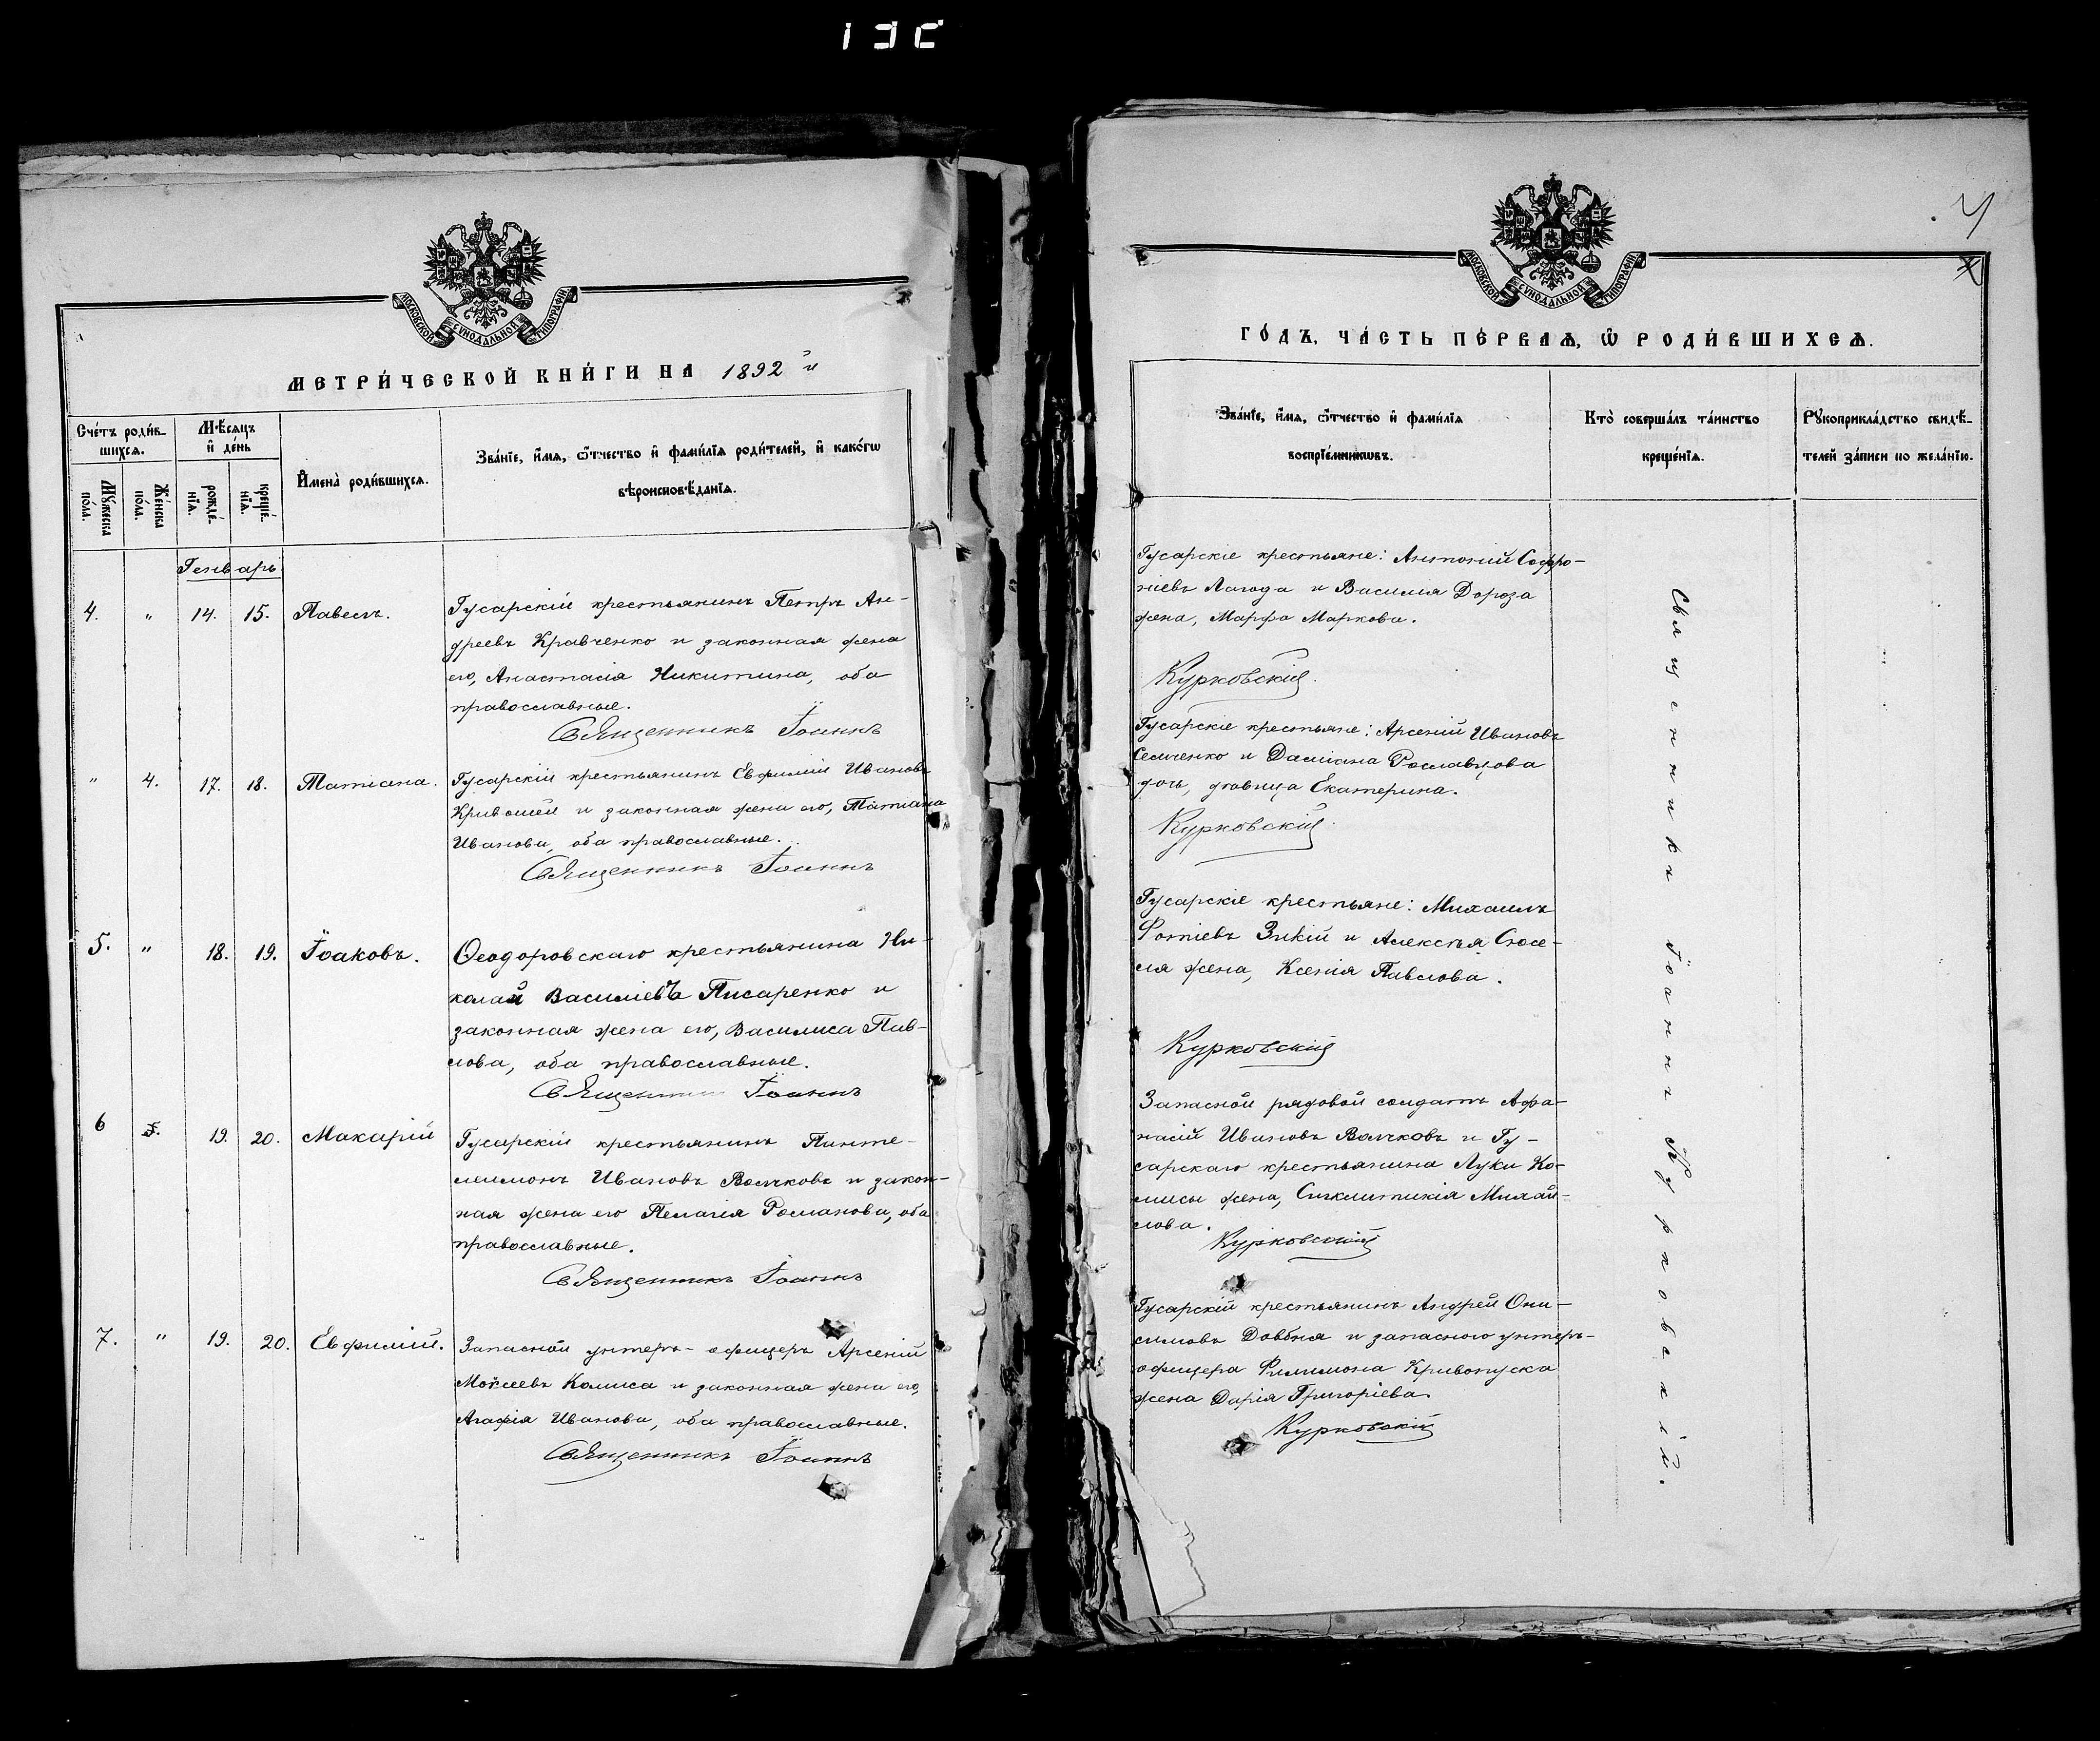 МОСКОВСКОЙ СѴНОДАЛЬНОЙ ТИПОГРАФІИ
МЕТРИ́ЧЕСКОЙ КНИ́ГИ НА 1892 й
Сче́тъ роди́в-
шихсѧ.
Мѣ́сѧцъ
и҆ де́нь
Мꙋ́жеска
по́ла.
Же́нска
по́ла.
рожде́-
нїѧ.
креще́-
нїѧ.
И҆мена̀ роди́вшихсѧ.
Зва́нїе, и҆́мѧ, ѻ҆́тчество и҆ фами́лїѧ роди́телей, и҆ како́гѡ
вѣроисповѣ́данїѧ.
Генварь.
4. " 14. 15. Павелъ. Гусарскій крестьянинъ Петръ Ан-
дреевъ Кравченко и законная жена
его, Анастасія Никитина, оба
православные.
Священникъ Іоаннъ
" 4. 17. 18. Татіана. Гусарскій крестьянинъ Евфимій Ивановъ
Кривошей и законная жена его, Татіана
Иванова, оба православные.
Священникъ Іоаннъ
5. " 18. 19. Іоаковъ. Ѳеодоровскаго крестьянина Ни-
колай Василіевъ Писаренко и
законная жена его, Василиса Пав-
лова, оба православные.
Священник Іоаннъ
6 5. 19. 20. Макарій Гусарскій крестьянинъ Панте-
леимонъ Ивановъ Волчковъ и закон-
ная жена его Пелагія Романова, оба
православные.
Священникъ Іоаннъ
7. " 19. 20. Евфимій. Запасной унтеръ-офицеръ Арсеній
Моѵсеевъ Колиса и законная жена его,
Агафія Иванова, оба православные.
Священникъ Іоаннъ
4
МОСКОВСКОЙ СѴНОДАЛЬНОЙ ТИПОГРАФІИ
ГО́ДЪ, ЧА́СТЬ ПЕ́РВАѦ, Ѡ҆ РОДИ́ВШИХСѦ.
Зва́нїе, и҆́мѧ, ѻ҆́тчество и҆ фами́лїѧ
воспрїе́мникѡвъ.
Кто̀ соверша́лъ та́инство
креще́нїѧ.
Рꙋкоприкла́дство свидѣ́-
телей за́писи по жела́нїю.
Гусарскіе крестьяне: Антоній Софро-
ніевъ Лагода и Василія Дороза
жена, Марфа Маркова.
Курковскій
Гусарскіе крестьяне: Арсеній Ивановъ
Семченко и Даміана Рославцова
дочь, дѣвица Екатерина.
Курковскій
Гусарскіе крестьяне: Михаилъ
Фотіевъ Зикій и Алексѣя Сюсе-
ля жена, Ксенія Павлова.
Курковскій
Запасной рядовой солдатъ Афа-
насій Ивановъ Волчковъ и Гу-
сарскаго крестьянина Луки Ко-
лисы жена, Синклитикія Михай-
лова.
Курковскій
Гусарскій крестьянинъ Андрей Они-
симовъ Довбня и запаснаго унтеръ-
офицера Филимона Кривопуска
жена Дарія Григоріева.
Курковскій
Священникъ Іоаннъ Курковскій.